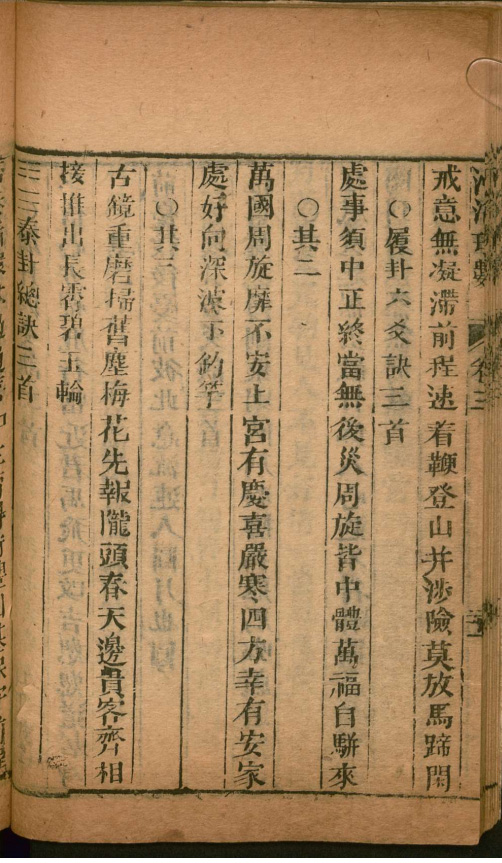 河洛理數 卷三
戒意無凝滯前程速着鞭登山并涉險莫放馬蹄閒
○履卦六爻訣三首
處事須中正終當無後災周旋皆中體萬福自駢來
○其二
萬國周旋靡不安上宮有慶喜嚴寒四方幸有安家
處好向深潭下釣竿
○其三
古鏡重磨掃舊塵梅花先報隴頭春天邊貴客齊相
接推出長霄碧玉輪
泰卦總訣三首